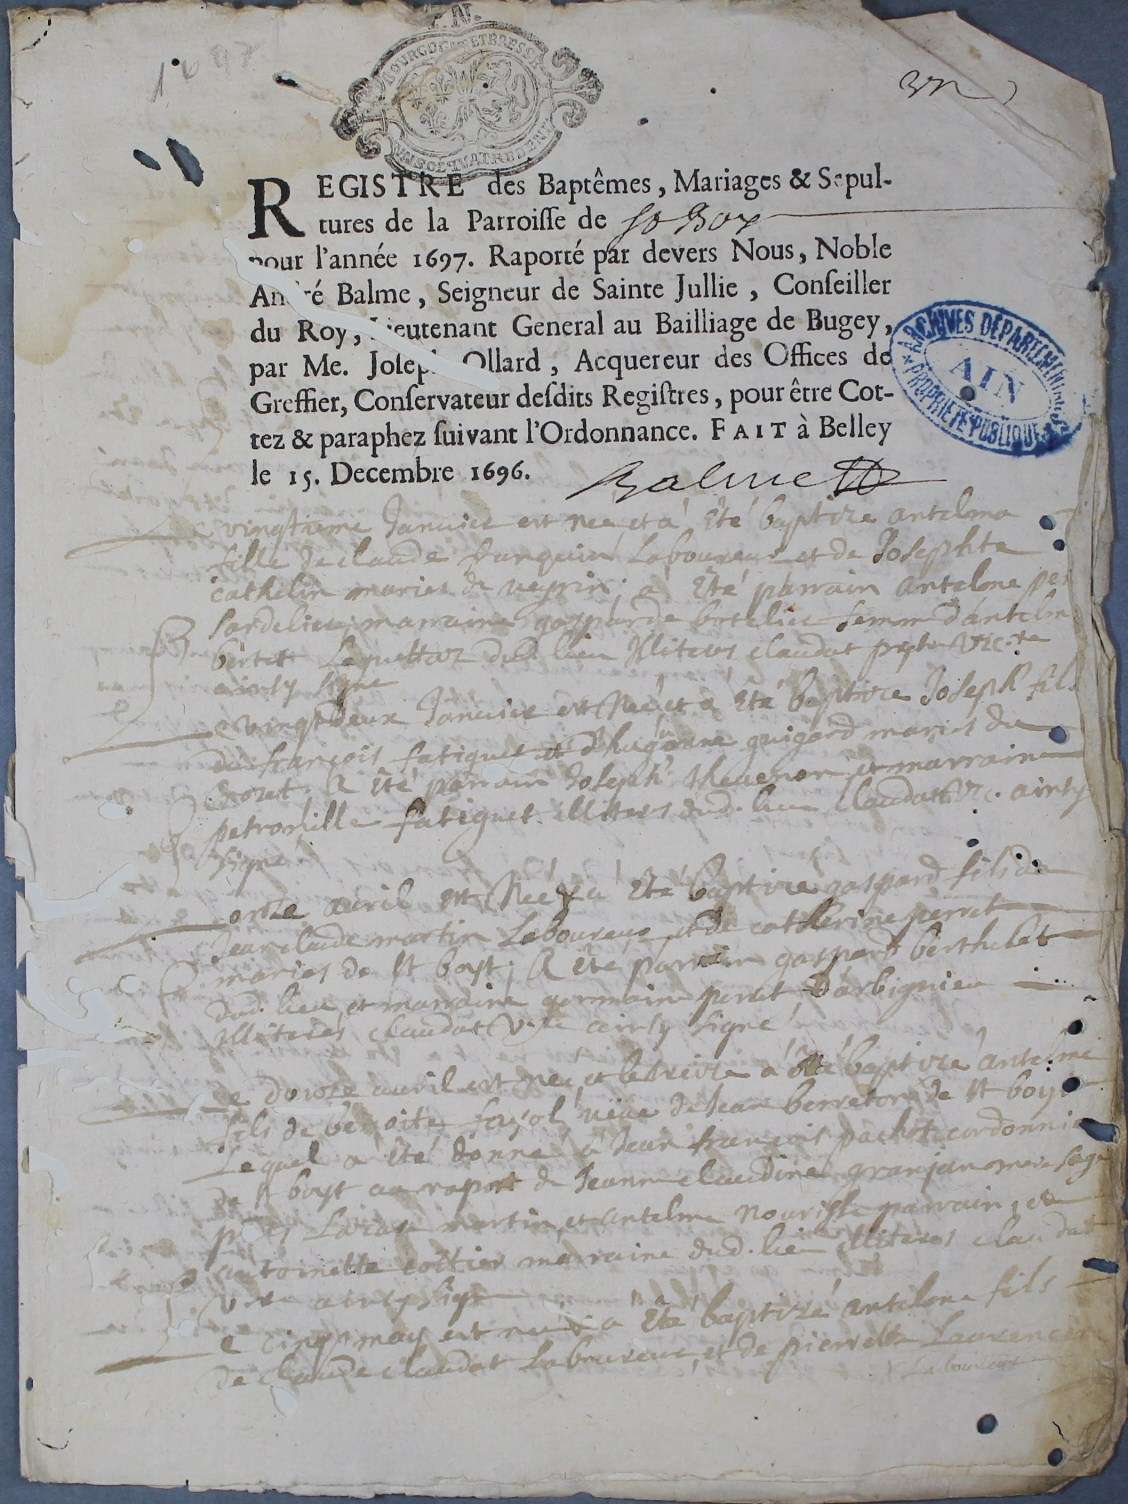 1697
BOURGOGNE ET BRESSE
REGISTRE des Baptêmes, Mariages & Sepul-
tures de la Parroisse de
pour l'année 1697. Raporté par devers Nous, Noble
André Balme, Seigneur de Sainte Jullie, Conseiller
du Roy, Lieutenant General au Bailliage de Bugey,
par Me. Joseph Ollard, Acquereur des Offices de
Greffier, Conservateur desdits Registres, pour être Cot-
tez & paraphez suivant l'Ordonnance. FAIT à Belley
le 15. Decembre 1696.
Balme
ARCHIVES DÉPARTEMENTALES
AIN
PROPRIÉTÉ PUBLIQUE
Le vingtieme Janvier est nee et a été baptize antelma
fille de claude Laboureur et de Josephte
cathelin maries de veyrin; a été parrain antelme
marraine gasparde femme d'antelme
dud. lieu Illiteres claudat
ainsy signe
Le vingt deux Janvier est Né et a été baptize Joseph fils
de françois fatiguet et d'hugonne guigard maries du
A été parrain Joseph thevenon et marraine
petronille fatiguet illiteres dud. lieu claudat vic. ainsy
signé
Le onze avril est Né et a été baptize gaspard fils de
Jean claude martin Laboureur et de catherine perret
maries de St boys; A été parrain gaspard berthelet
dud. lieu et marraine germaine perret d'arbignieu
Illiteres claudat ainsy signé
Le douze avril est né et le treize a été baptizé antelme
fils de benoite fayol veuve de Jean berreton de St boys
Lequel a été donné à Jean françois pachot cordonnier
de St boys au raport de Jeanne claudine sage
martin et antelme parrain, et
antoinette cottier marraine dud. lieu illiteres claudat
ainsy signe
Le cinq may est né et a été baptizé antelme fils
de claude claudat Laboureur et de pierrette Laurencin
Laboureur